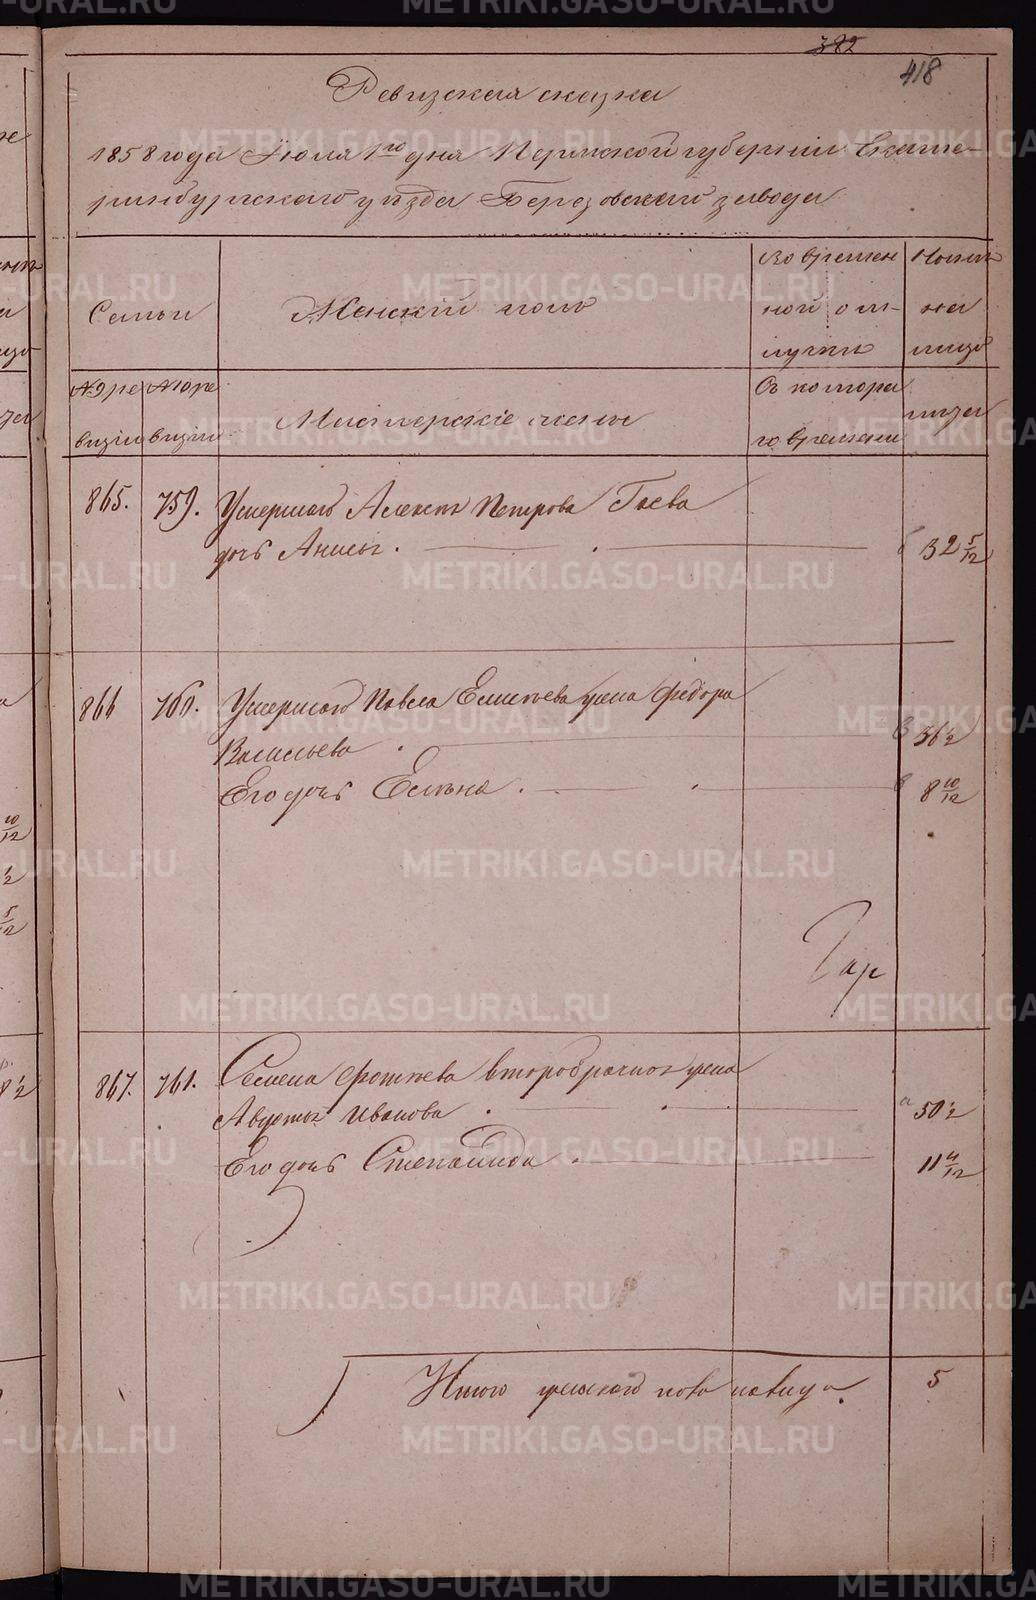 382
418
Ревизская сказка
1858 года Июля 1го дня Пермской губернии Екате-
ринбургскаго уезда Березовскаго завода
Семьи
Женскій полъ
Во времен
ной от-
лучки
Ныне
на
лицо
№ 9 ре
визіи
№ 10 ре
визіи
Мастерскіе жены
Съ котора
го времени
лета
865.
759.
Умершаго Алексея Петрова Гаева
дочь Анисья.
32 5/12
866
760.
Умершаго Павла Елисеева жена Федора
Васильева
56 1/2
Его дочь Елена.
8 10/12
867.
761.
Семена Фотеева второбрачная жена
Авдотья Иванова
50 1/2
Его дочь Степанида
11 4/12
Итого женского пола налицо.
5
METRIKI.GASO-URAL.RU